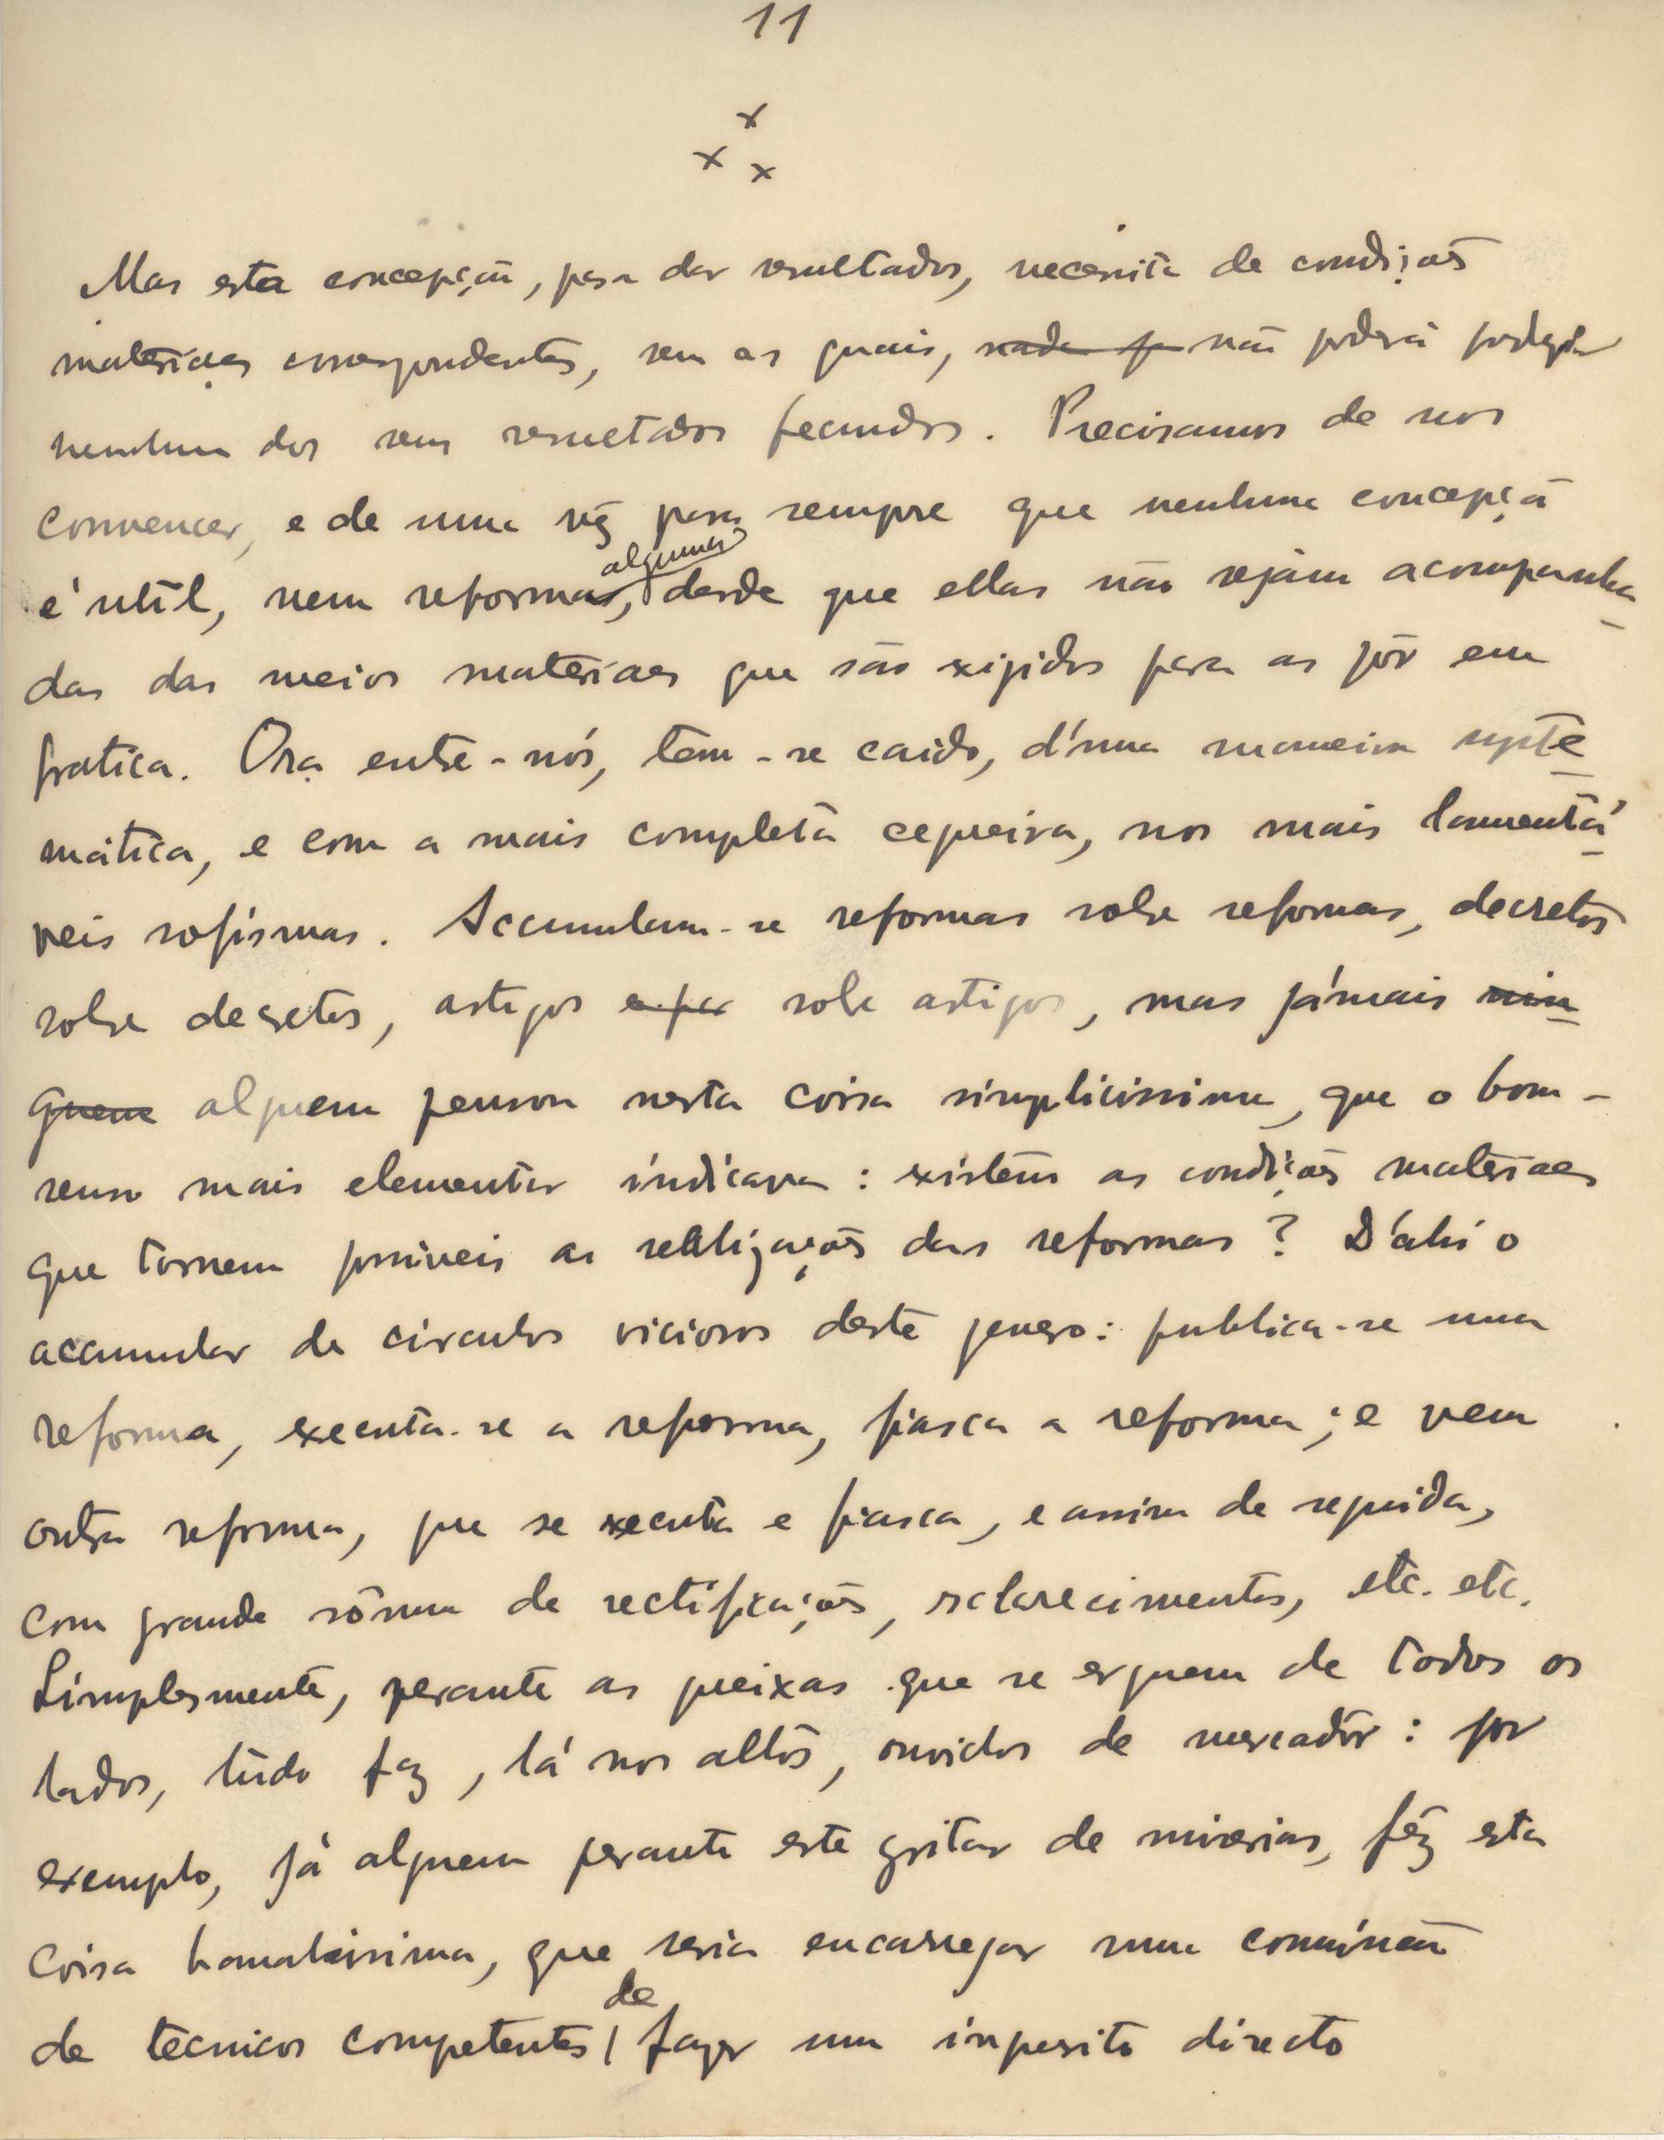 11
x
x x
Mas esta concepção, para dar resultados, necessita de condições
materiaes correspondentes, sem as quais, não poderá
nenhum dos seus resultados fecundos. Precisamos de nos
convencer, e de uma vêz para sempre que nenhuma concepçã
é util, nem reforma algumas, desde que ellas não sejam acompanha
das dos meios materiaes que são exigidos para as pôr em
pratica. Ora entre-nós, tem-se caido, d'uma maneira syste
mática, e com a mais completa cegueira, nos mais lamentá
veis sofismas. Accumulam-se reformas sobre reformas, decretos
sobre decretos, artigos sobre artigos, mas jámais nin
guem alguem pensou nesta coisa simplicissima, que o bom-
senso mais elementar indicava: existem as condições materiaes
que tornem possiveis as realizações das reformas? D'ahi o
accumular de circulos viciosos deste genero: publica-se uma
reforma, executa-se a reforma, fiasca a reforma; e vem
outra reforma, que se executa e fiasca, e assim de seguida,
com grande sôma de rectificações, esclarecimentos, etc. etc.
Simplesmente, perante as queixas que se erguem de todos os
lados, tudo faz, lá nos altos, ouvidos de mercador: por
exemplo, já alguem perante este gritar de miserias, fêz esta
coisa banalissima, que seria encarregar uma comissão
de tecnicos competentes de fazer um inquerito directo